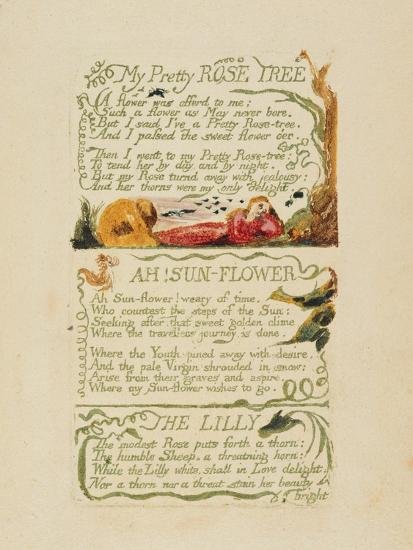 My Pretty ROSE TREE
A flower was offerd to me:
Such a flower as May never bore.
But I said I've a Pretty Rose-tree.
And I passed the sweet flower o'er.
Then I went to my Pretty Rose-tree:
To tend her by day and by night.
But my Rose turnd away with jealousy:
And her thorns were my only delight.
AH! SUN-FLOWER
Ah Sun-flower! weary of time.
Who countest the steps of the Sun:
Seeking after that sweet golden clime
Where the travellers journey is done.
Where the Youth pined away with desire,
And the pale Virgin shrouded in snow:
Arise from their graves and aspire,
Where my Sun-flower wishes to go.
THE LILLY
The modest Rose puts forth a thorn:
The humble Sheep, a threatning horn:
While the Lilly white, shall in Love delight,
Nor a thorn nor a threat stain her beauty
bright